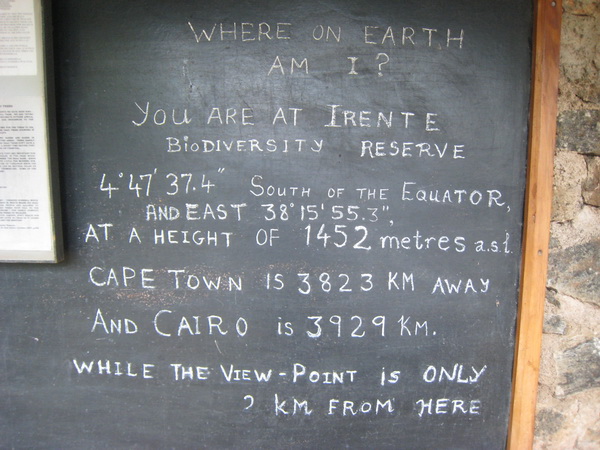 WHERE ON EARTH
AM I?
YOU ARE AT IRENTE
BIODIVERSITY RESERVE
4°47'37.4" SOUTH OF THE EQUATOR,
AND EAST 38°15'55.3",
AT A HEIGHT OF 1452 metres a.s.l.
CAPE TOWN IS 3823 KM AWAY
AND CAIRO is 3929 KM.
WHILE THE VIEW-POINT is ONLY
2 KM FROM HERE